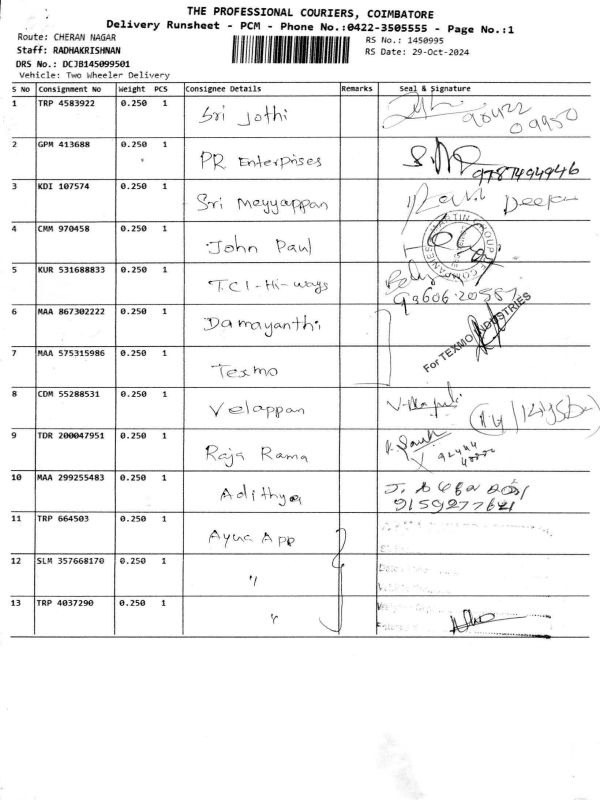 THE PROFESSIONAL COURIERS, COIMBATORE
Delivery Runsheet - PCM - Phone No.:0422-3505555 - Page No.:1
Route: CHERAN NAGAR
RS No.: 1450995
Staff: RADHAKRISHNAN
RS Date: 29-Oct-2024
DRS No.: DCJB145099501
Vehicle: Two Wheeler Delivery
S No Consignment No Weight PCS Consignee Details Remarks Seal & Signature
1 TRP 4583922 0.250 1 Sri Jothi 98422 09950
2 GPM 413688 0.250 1 PR Enterprises 9787494946
3 KDI 107574 0.250 1 Sri Meyyappan
4 CMM 970458 0.250 1 John Paul
5 KUR 531688833 0.250 1 TCI-Hi-ways
6 MAA 867302222 0.250 1 Damayanthi
7 MAA 575315986 0.250 1 Texmo For TEXMO INDUSTRIES
8 CDM 55288531 0.250 1 Velappan
9 TDR 200047951 0.250 1 Raja Rama
10 MAA 299255483 0.250 1 Adithya 9159277621
11 TRP 664503 0.250 1 Ayua App
12 SLM 357668170 0.250 1 "
13 TRP 4037290 0.250 1 "